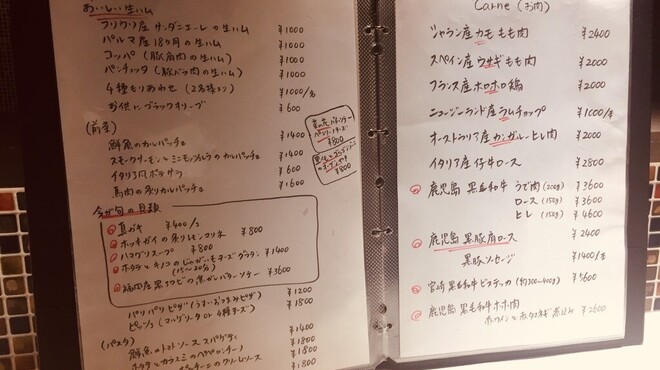 おいしい生ハム
フリウリ産 サンダニエーレの生ハム ¥1000
パルマ産 18ヶ月の生ハム ¥1000
コッパ (豚肩肉の生ハム) ¥1000
パンチェッタ (豚バラ肉の生ハム) ¥1000
4種もりあわせ (2名様より) ¥1000/名
お供に ブラックオリーブ ¥600
(前菜)
鮮魚のカルパッチョ ¥1400
スモークサーモンとミニモッツァレラのカルパッチョ ¥1400
イタリア風ポテサラ ¥600
馬肉の炙りカルパッチョ ¥1600
¥800
¥800
今が旬の貝類
真ガキ ¥400/コ
ホッキガイの炙りレモンコリネ ¥800
ハマグリスープ ¥800
ホタテとキノコのじゃがいもチーズグラタン ¥1400
(15〜20分)
福岡産黒アワビの焦がしバターソテー ¥3600
パリパリピザ (うす〜いおつまみピザ) ¥1200
ピッツァ (マルゲリータ or 4種チーズ) ¥1800
(パスタ)
鮮魚のトマトソース スパゲティ ¥1400
ホタテとカラスミのペペロンチーノ ¥1800
のクリームソース ¥1800
Carne (お肉)
シャラン産 カモ もも肉 ¥2400
スペイン産 ウサギもも肉 ¥2000
フランス産 ホロホロ鶏 ¥2000
ニュージーランド産 ラムチョップ ¥1000/本
オーストラリア産 カンガルーヒレ肉 ¥2000
イタリア産 仔牛ロース ¥2800
鹿児島 黒毛和牛 うで肉 (200g) ¥3600
ロース (150g) ¥3600
ヒレ (150g) ¥4600
鹿児島 黒豚肩ロース ¥2400
黒豚ソーセージ ¥1400/本
宮崎 黒毛和牛ビステッカ (約300〜400g) ¥5600
鹿児島 黒毛和牛ホホ肉
赤ワインと 煮込み ¥2600